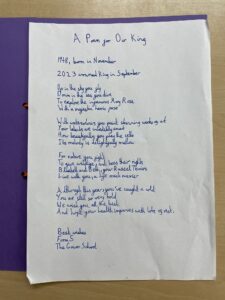 A Poem for Our King
1948, born in November
2023 crowned King in September
Up in the sky you fly
Down in the sea you dive
To explore the ingenious Mary Rose
With a majestic heroic pose
With watercolours you paint stunning works of art
Your blends are incredibly smart
How beautifully you play the cello
Its melody is delightfully mellow
For nature you fight
To give wildlife and trees their rights
Bluebell and Beth, your Russell Terriers
Live with you, a life much merrier
Although this year you've caught a cold
You are still so very bold
We wish you all the best
And hope your health improves with lots of rest.
Best wishes
Form 5
The School